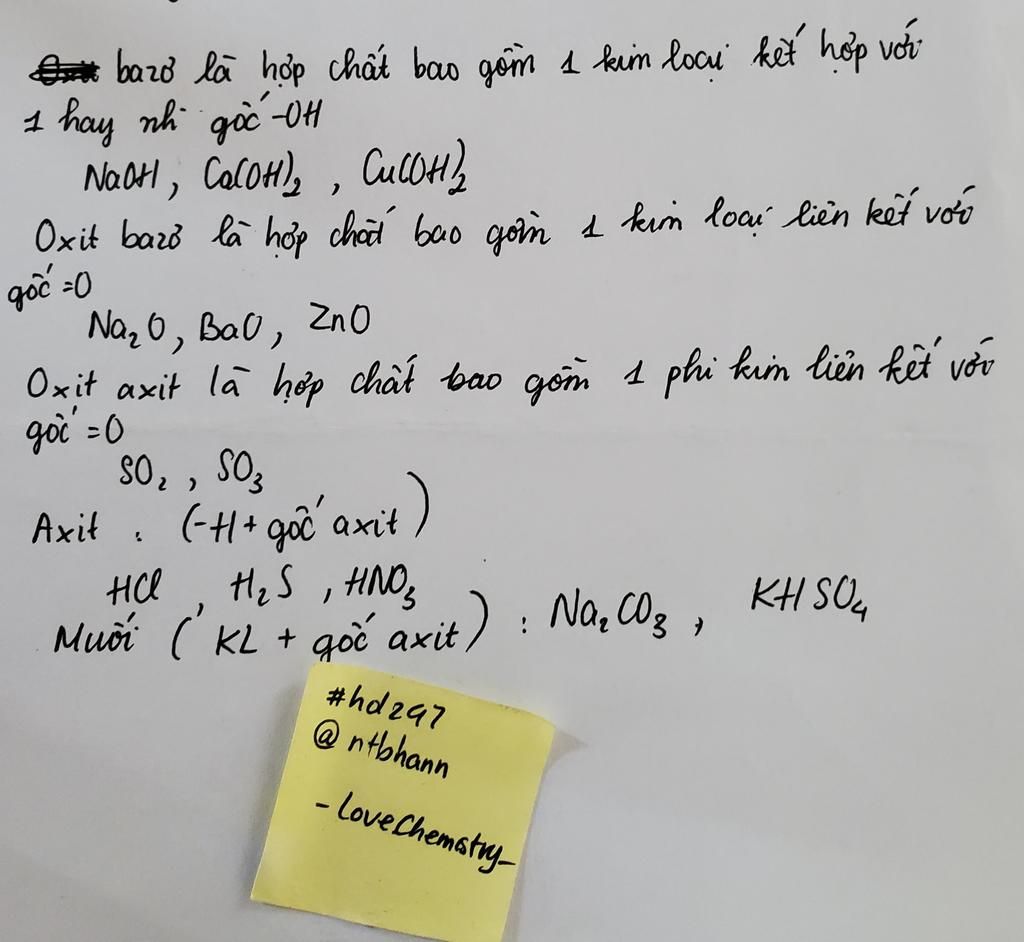 bazơ là hợp chất bao gồm 1 kim loại kết hợp với
1 hay nh gốc -OH
NaOH, Ca(OH)2, Cu(OH)2
Oxit bazơ là hợp chất bao gồm 1 kim loại liên kết với
gốc =O
Na2O, BaO, ZnO
Oxit axit là hợp chất bao gồm 1 phi kim liên kết với
gốc =O
SO2, SO3
Axit : (-H + gốc axit)
HCl, H2S, HNO3
Muối (KL + gốc axit) : Na2CO3, KHSO4
#hd297
@ntbhann
-LoveChemistry-